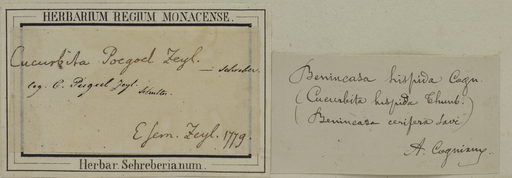 HERBARIUM REGIUM MONACENSE.
Cucurbita Pocgoel Zeyl.
— Schreber.
E sem. Zeyl. 1779.
Herbar. Schreberianum.
Benincasa hispida Cogn.
(Cucurbita hispida Thunb.
(Benincasa cerifera Savi
A. Cogniaux